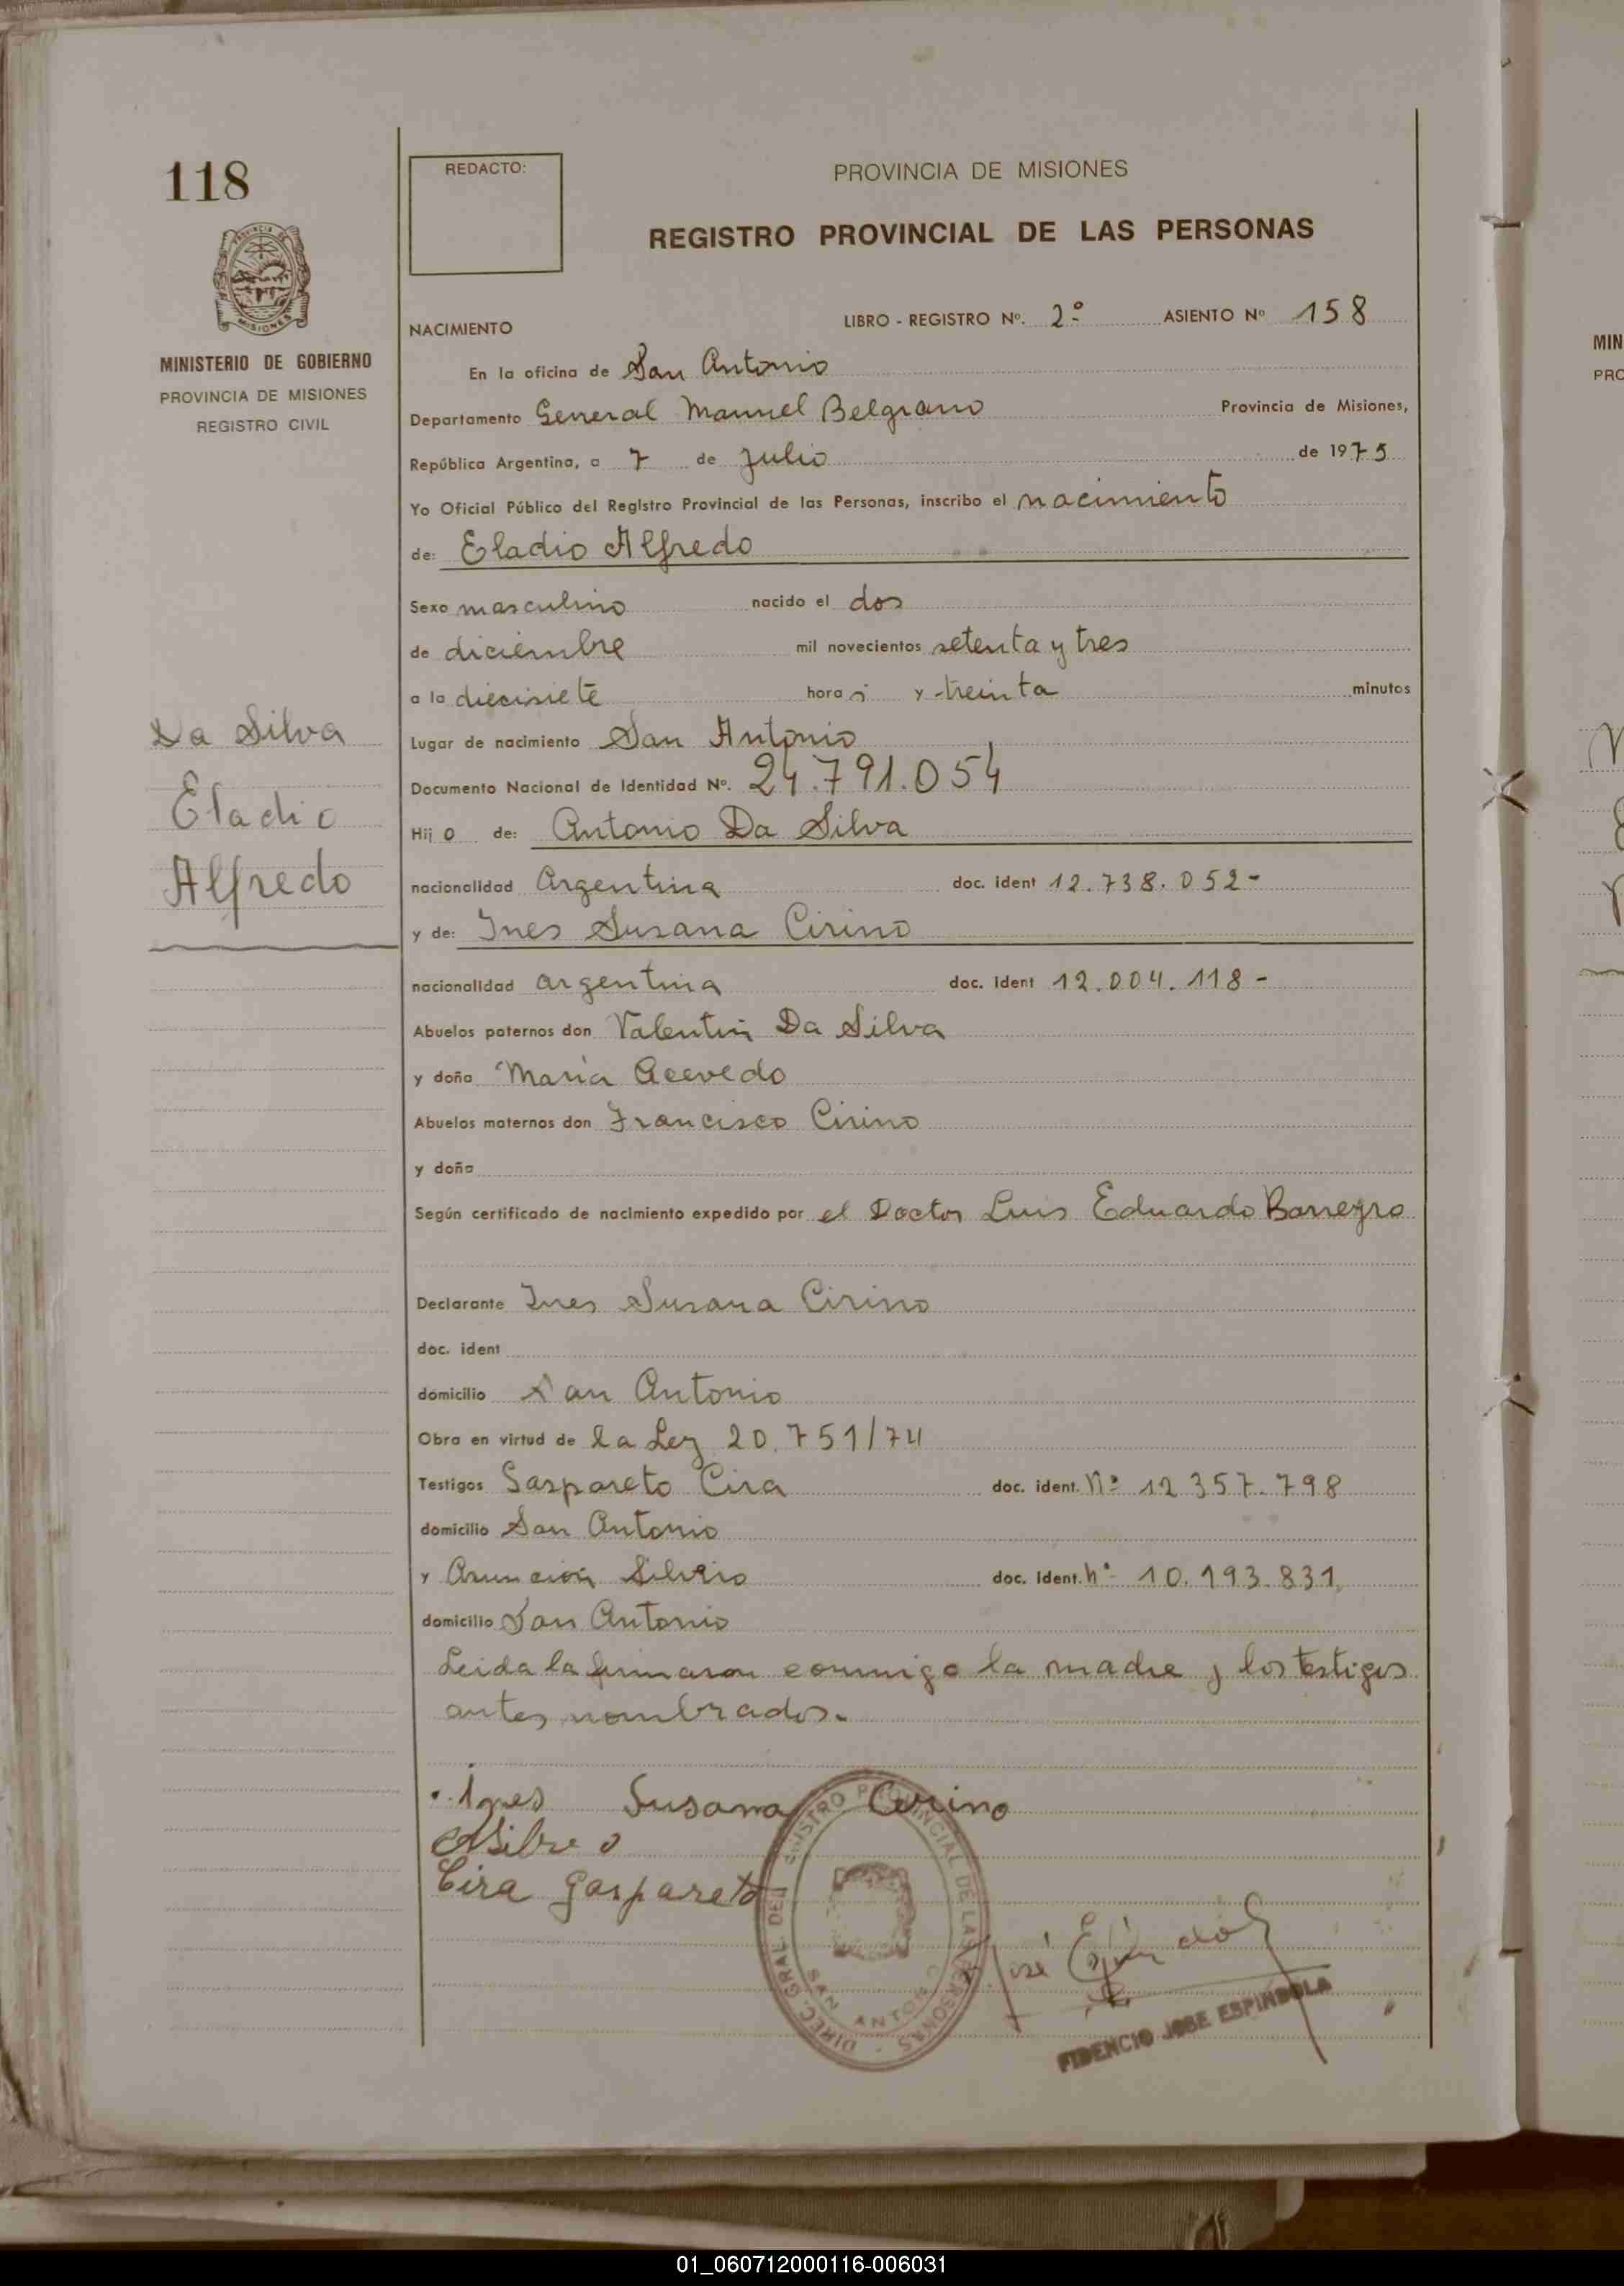 118
REDACTO:
PROVINCIA DE MISIONES
REGISTRO PROVINCIAL DE LAS PERSONAS
MISIONES
MINISTERIO DE GOBIERNO
PROVINCIA DE MISIONES
REGISTRO CIVIL
NACIMIENTO
LIBRO - REGISTRO Nº. 2º ASIENTO Nº 158
En la oficina de San Antonio
Departamento General Manuel Belgrano Provincia de Misiones,
República Argentina, a 7 de julio de 1975
Yo Oficial Público del Registro Provincial de las Personas, inscribo el nacimiento
de: Eladio Alfredo
Sexo masculino nacido el dos
de diciembre mil novecientos setenta y tres
a la diecisiete horas y treinta minutos
Da Silva
Eladio
Alfredo
Lugar de nacimiento San Antonio
Documento Nacional de Identidad Nº. 24.791.054
Hijo de: Antonio Da Silva
nacionalidad Argentina doc. ident 12.738.052-
y de: Ines Susana Cirino
nacionalidad argentina doc. ident 12.004.118-
Abuelos paternos don Valentin Da Silva
y doña Maria Acevedo
Abuelos maternos don Francisco Cirino
y doña
Según certificado de nacimiento expedido por el Doctor Luis Eduardo
Declarante Ines Susana Cirino
doc. ident
domicilio San Antonio
Obra en virtud de la Ley 20.751/74
Testigos Gaspareto Cira doc. ident. Nº 12 357.798
domicilio San Antonio
y Asunción Silvero doc. ident. nº 10.193.831
domicilio San Antonio
Leida la firmaron conmigo la madre y los testigos
antes nombrados.
Ines Susana Cirino
Cira Gaspareto
DIREC. GRAL. DEL REGISTRO PROVINCIAL DE LAS PERSONAS
SAN ANTONIO
FIDENCIO JOSE ESPINDOLA
MIN
PRO
01_060712000116-006031